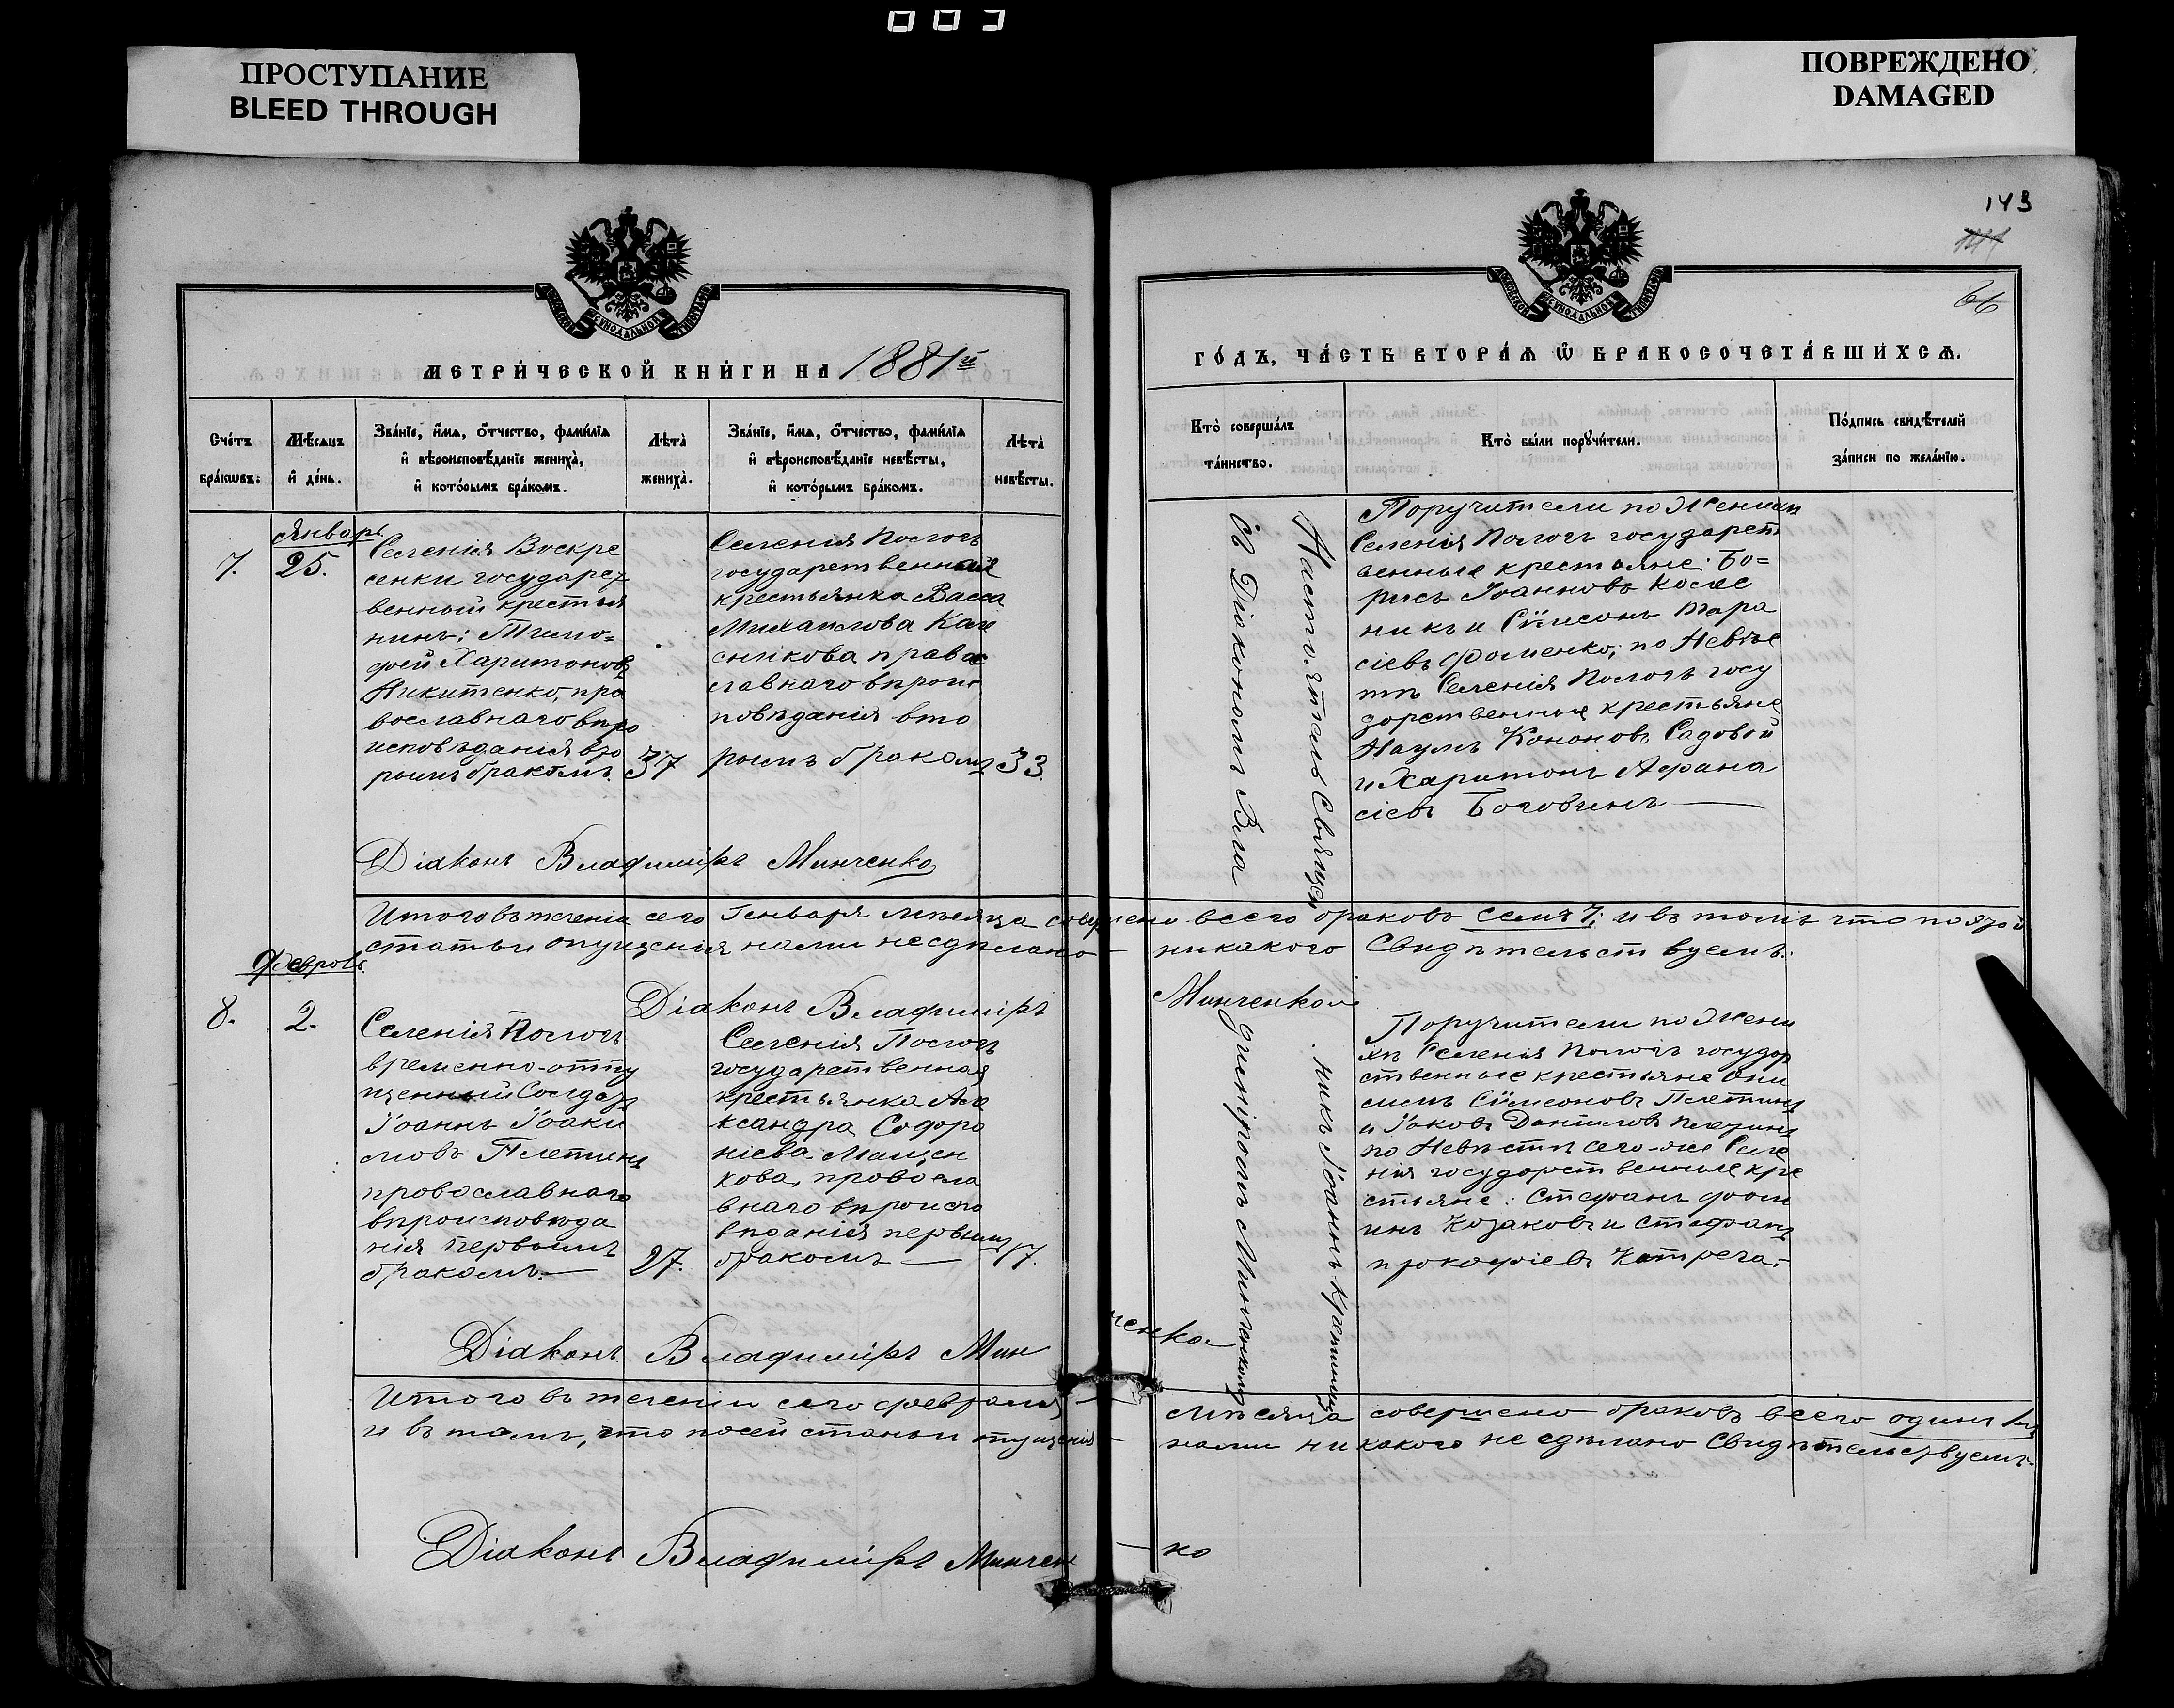 ПРОСТУПАНИЕ
BLEED THROUGH
ПОВРЕЖДЕНО
DAMAGED
143
66
МЕТРИ́ЧЕСКОЙ КНИ́ГИ НА 1881й
ГО́ДЪ, ЧА́СТЬ ВТОРА́Ѧ Ѽ БРАКОСОЧЕТА́ВШИХСѦ.
Сче́тъ бра́кѡвъ.
Мѣ́сѧцъ и де́нь.
Зва́нїе, и́мѧ, о́тчество, фами́лїѧ и вѣроисповѣ́данїе жениха̀, и кото́рымъ бра́комъ.
Лѣта̀ жениха̀.
Зва́нїе, и́мѧ, о́тчество, фами́лїѧ и вѣроисповѣ́данїе невѣ́сты, и кото́рымъ бра́комъ.
Лѣта̀ невѣ́сты.
Кто̀ соверша́лъ та́инство.
Кто̀ бы́ли порꙋчи́тели.
По́дпись свидѣ́телей за́писи по жела́нїю.
Январь
7.
25.
Селенія Воскре
сенки государст
венный крестья
нинъ: Тимо=
фей Харитоновъ
Никитенко, пра
вославнаго вѣро
исповѣданія вто
рымъ бракомъ.
37
Селенія Пологъ
государственная
крестьянка Васса
Михайлова Коле
сникова правос
лавнаго вѣроис
повѣданія вто
рымъ бракомъ
33.
Настоятель Священ
Съ Діакономъ Вла
Поручители по Жених
Селенія Пологъ государст
венные крестьяне: Бо=
рисъ Іоанновъ Колес
никъ и Сѵмеонъ Тара
сіевъ Фоменко; по Невѣс
тѣ Селенія Пологъ госу
дарственные крестьяне
Наумъ Кононовъ Садовой
и Харитонъ Афана
сіевъ
Діаконъ Владиміръ Минченко
Итого въ теченіи сего Генваря мѣсяца совершено всего браковъ семь 7; и въ томъ что по этой
статьи опущенія нами не сдѣлано никакого Свидѣтельствуемъ:
Діаконъ Владиміръ Минченко
Февраль
8.
2.
Селенія Пологъ
временно-отпу
щенный Солдатъ
Іоаннъ Іоаки
мовъ Плетинь
православнаго
вѣроисповѣда
нія первымъ
бракомъ.
27.
Селенія Пологъ
государственная
крестьянка Але
ксандра Софро
ніева Мащен
кова, правосла
внаго вѣроиспо
вѣданія первымъ
бракомъ
17.
никъ Іоаннъ
диміромъ Минченкомъ
Поручители по Жени
хѣ Селенія Пологъ государ
ственные крестьяне Они
симъ Сѵмеоновъ Плетинь
и Іаковъ Даниловъ Плетинь
по Невѣстѣ сего-же Селе
нія государственные кре
стьяне: Стефанъ Фом
инъ Козаковъ и Стефанъ
Прокофіевъ Катреча.
Діаконъ Владиміръ Минченко
Итого въ теченіи сего февраля мѣсяца совершено браковъ всего одинъ 1й
и въ томъ, что по сей статьи опущенія нами никакого не сдѣлано Свидѣтельствуемъ
Діаконъ Владиміръ Минченко